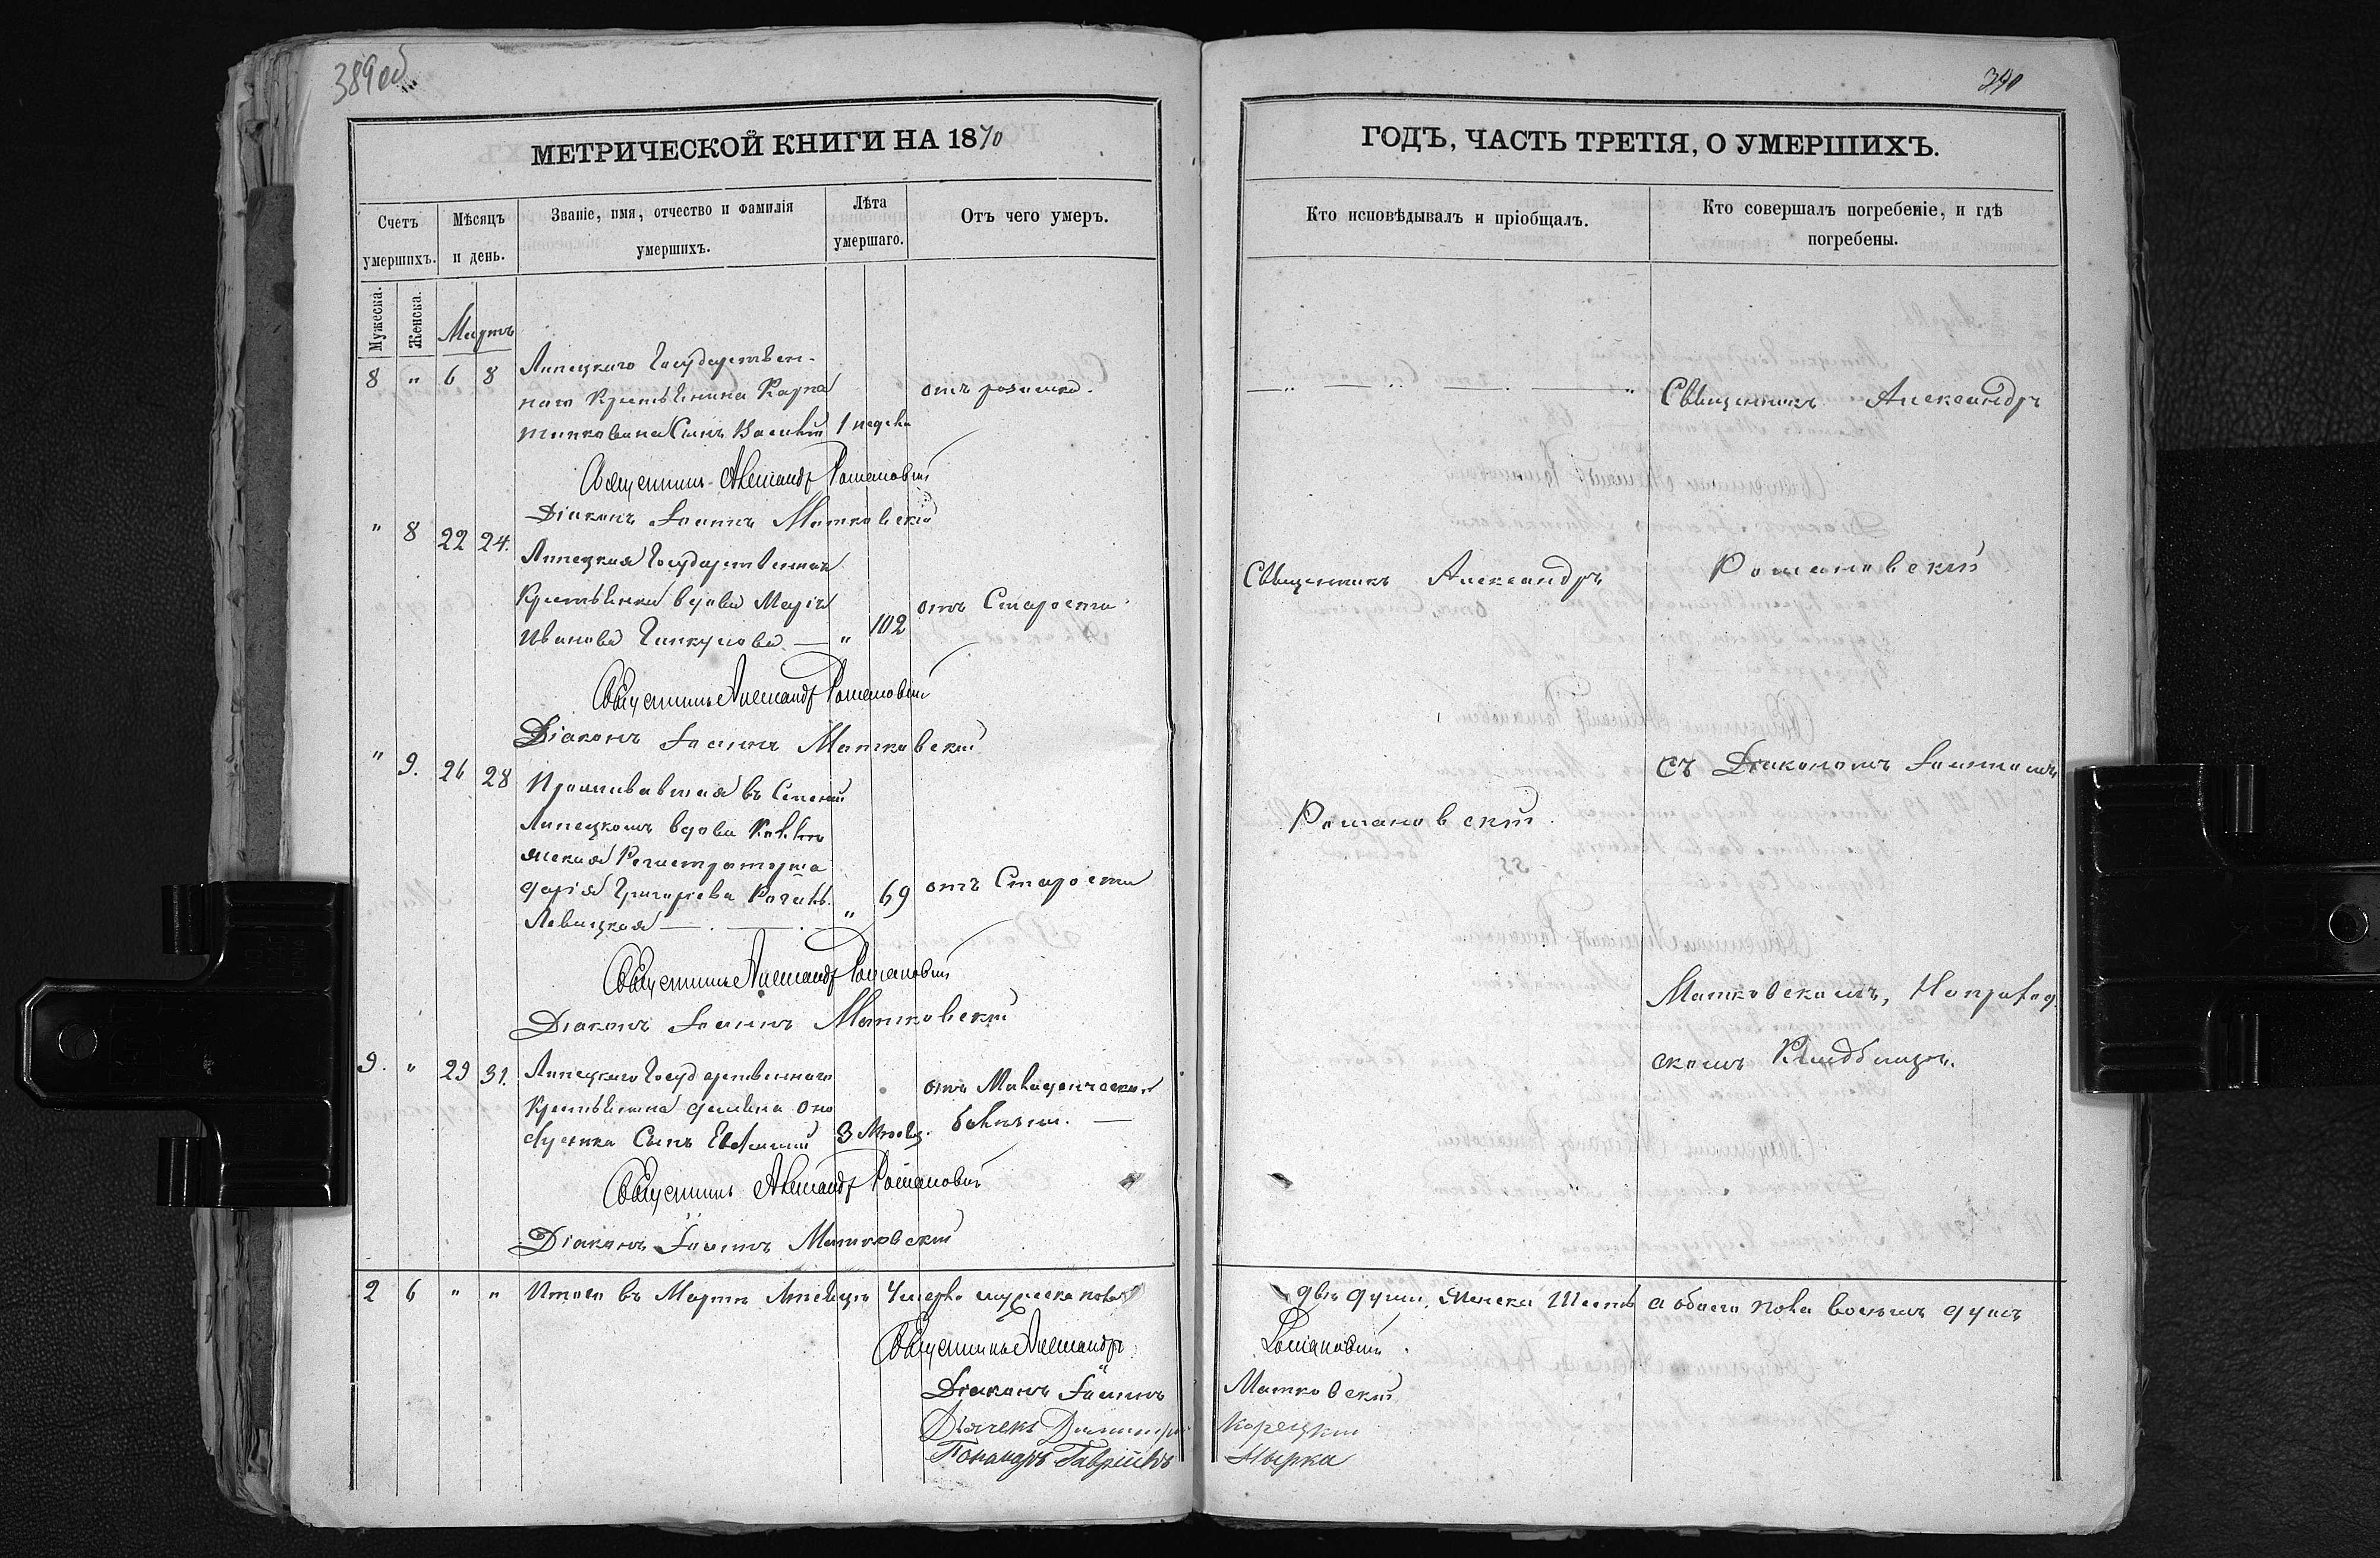 389об
МЕТРИЧЕСКОЙ КНИГИ НА 1870
Счетъ умершихъ.
Мѣсяцъ и день.
Званіе, имя, отчество и фамилія умершихъ.
Лѣта умершаго.
Отъ чего умеръ.
Мужеска.
Женска.
Мартъ
8 " 6 8 Липецкаго Государствен-
наго Крестьянина Карпа
Сынъ Василій 1 недели
отъ
Священникъ Александръ Романовскій
Діаконъ Іоаннъ Матковскій
" 8 22 24. Липецкая Государственная
Крестьянка вдова Марія
Иванова — " 102 отъ Старости
Священникъ Александръ Романовскій
Діаконъ Іоаннъ Матковскій
" 9. 26 28 Проживавшая въ Селеніи
Липецкомъ вдова Коллеж
ская Регистраторша
Дарія Григоріева
Левицкая — " 69 отъ Старости
Священникъ Александръ Романовскій
Діаконъ Іоаннъ Матковскій
9. " 29 31. Липецкаго Государственнаго
Крестьянина
Сынъ Евфимій 3 отъ Младенческой
болѣзни. —
Священникъ Александръ Романовскій
Діаконъ Іоаннъ Матковскій
2 6 " " Итого въ Мартѣ Мѣсяцѣ Умерло мужеска пола
Священникъ Александръ
Діаконъ Іоаннъ
Дьячекъ Димитрій
Пономарь Гавріилъ
390
ГОДЪ, ЧАСТЬ ТРЕТІЯ, О УМЕРШИХЪ.
Кто исповѣдывалъ и пріобщалъ.
Кто совершалъ погребеніе, и гдѣ погребены.
Священникъ Александръ
Священникъ Александръ
Романовскій
съ Діакономъ Іоанномъ
Романовскій.
Матковскимъ, На приход
скомъ Кладбищѣ.
двѣ души, Женска Шесть а обоего пола восемь душъ
Романовскій
Матковскій
Корецкій
Нырка